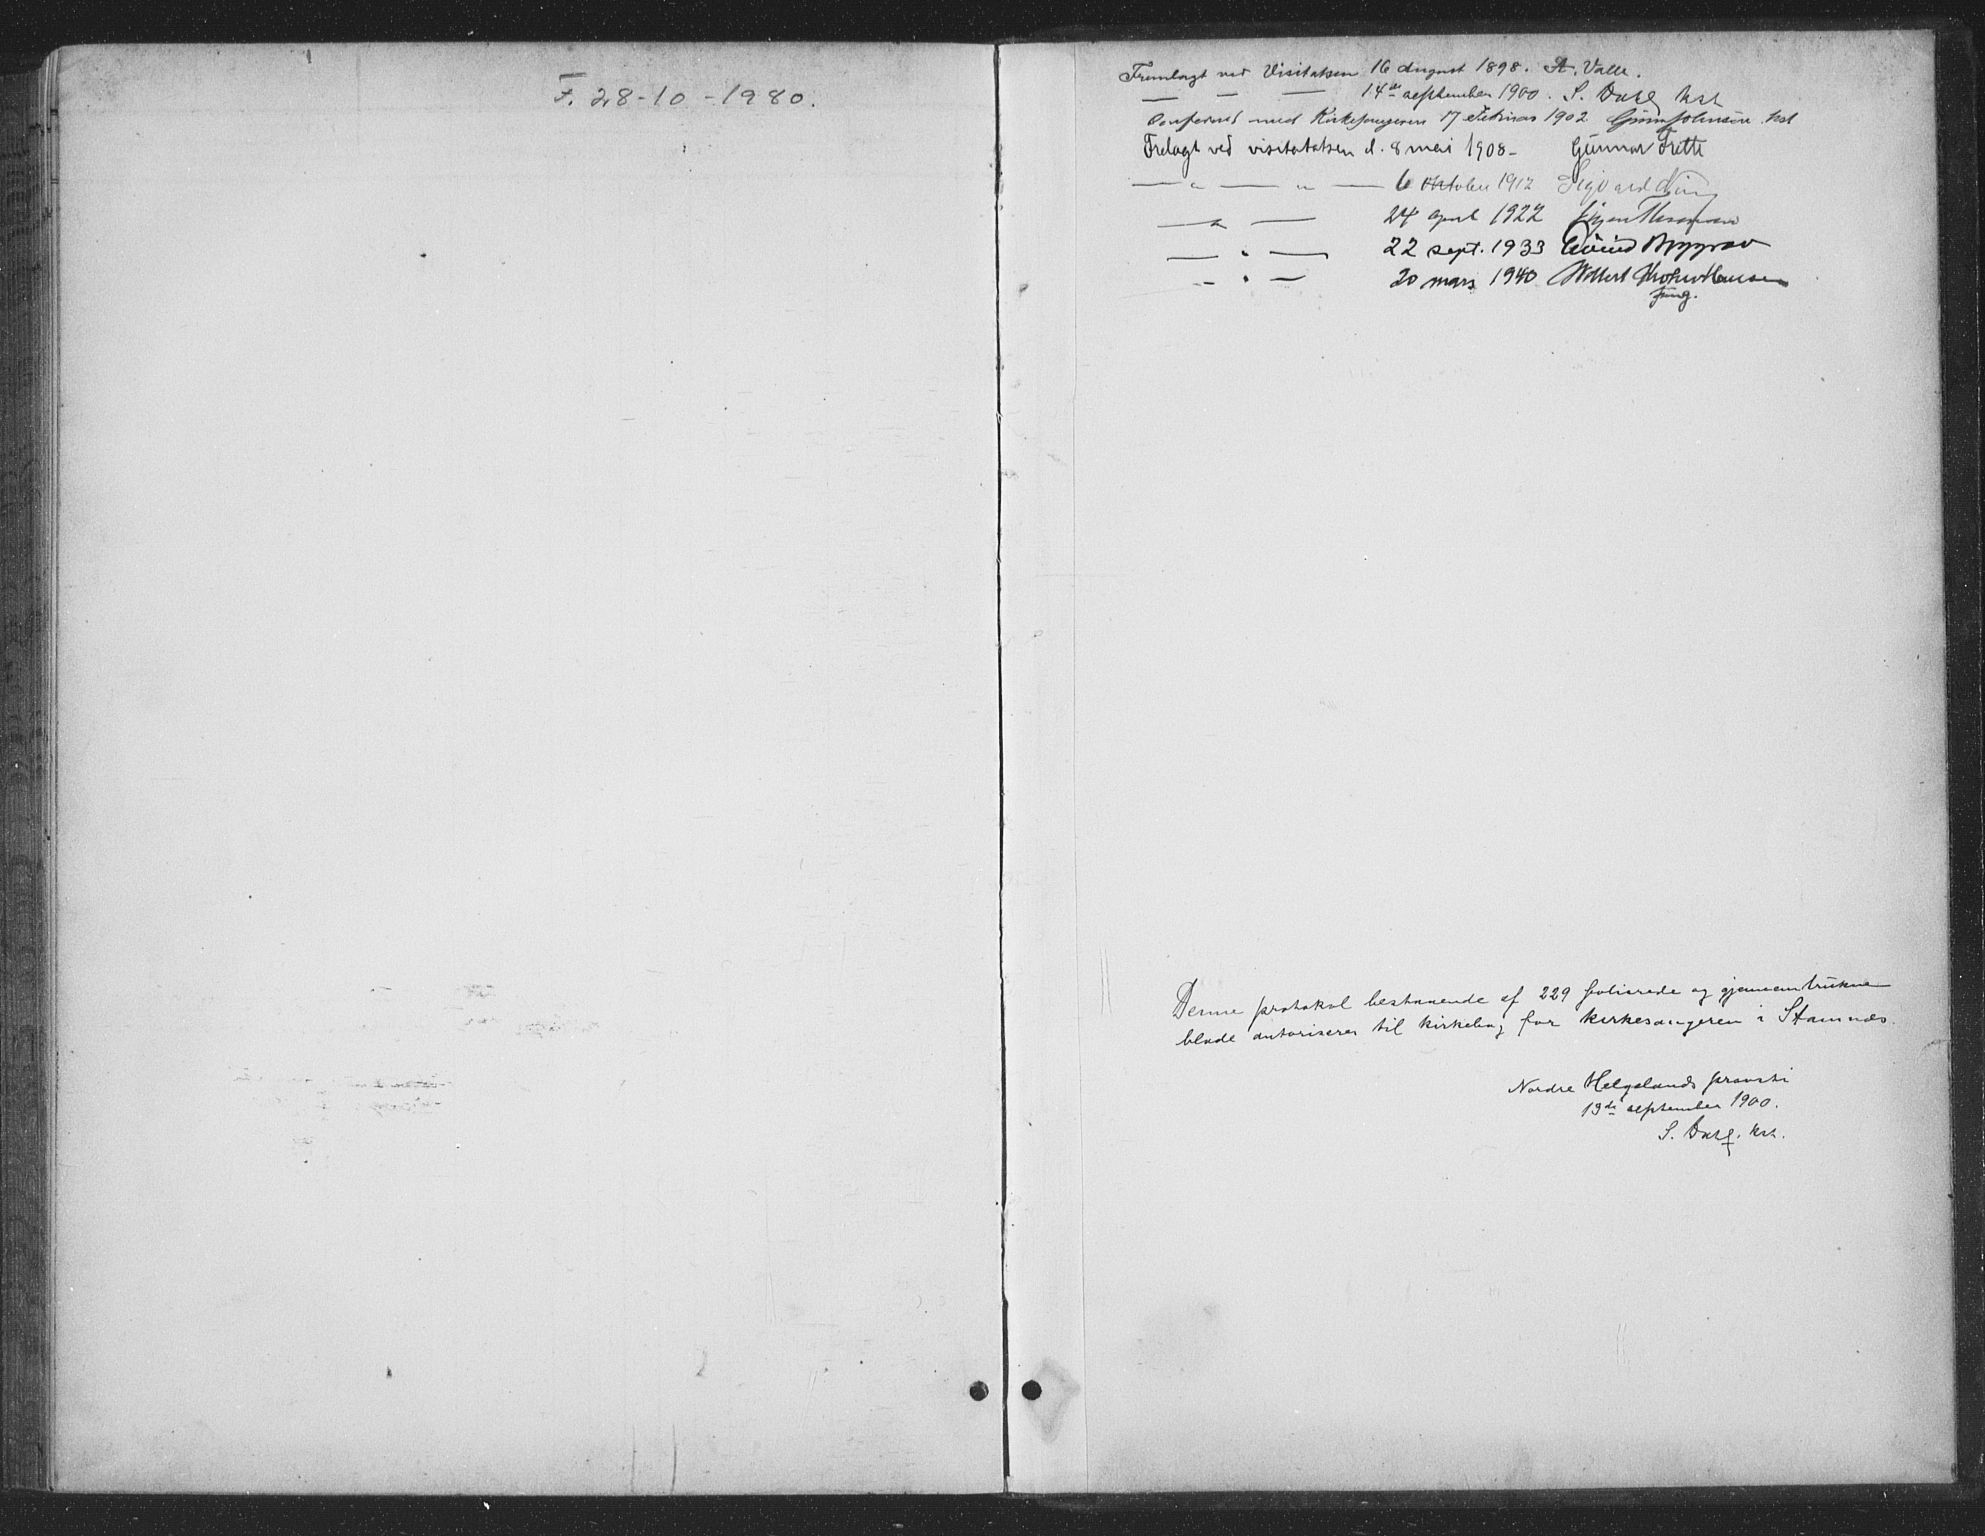 F. 28-10-1980.
Fremlagt ved Visitatsen 16 august 1898. A. Valle.
— — — 14de september 1900. S. Dahl kst
Confereret med Kirkesangerens 17 Februar 1902 Johnson kst
Frelagt ved visitatsen d. 8 mai 1908 - Gunnar Tretti
— " — " — 6 oktober 1912 Sigvard
— " — 24 april 1922
— " — 22 sept. 1933 Eivind
— " — 20 mars 1940
fung.
Denne protokol bestaaende af 229 folierede og gjennemtrukne
blade autoriseres til kirkebog for kirkesangeren i Stamnæs.
Nordre Helgelands provsti
13de september 1900.
S. Dahl. kst.